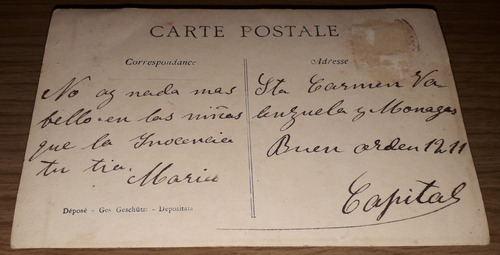 CARTE POSTALE
Correspondance
No ay nada mas
bello en las niñas
que la Inocencia
tu tia.
Maria
Déposé - Ges Geschützt - Depositata
Adresse
Sta Carmen Va
lenzuela y Monagas
Buen orden 1211
Capital